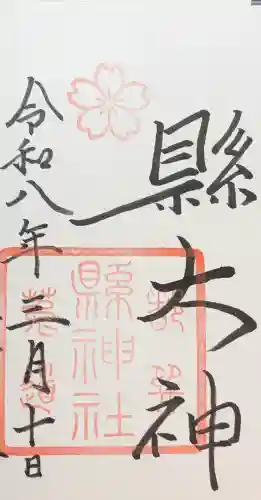 縣大神
令和八年三月十日
縣神社